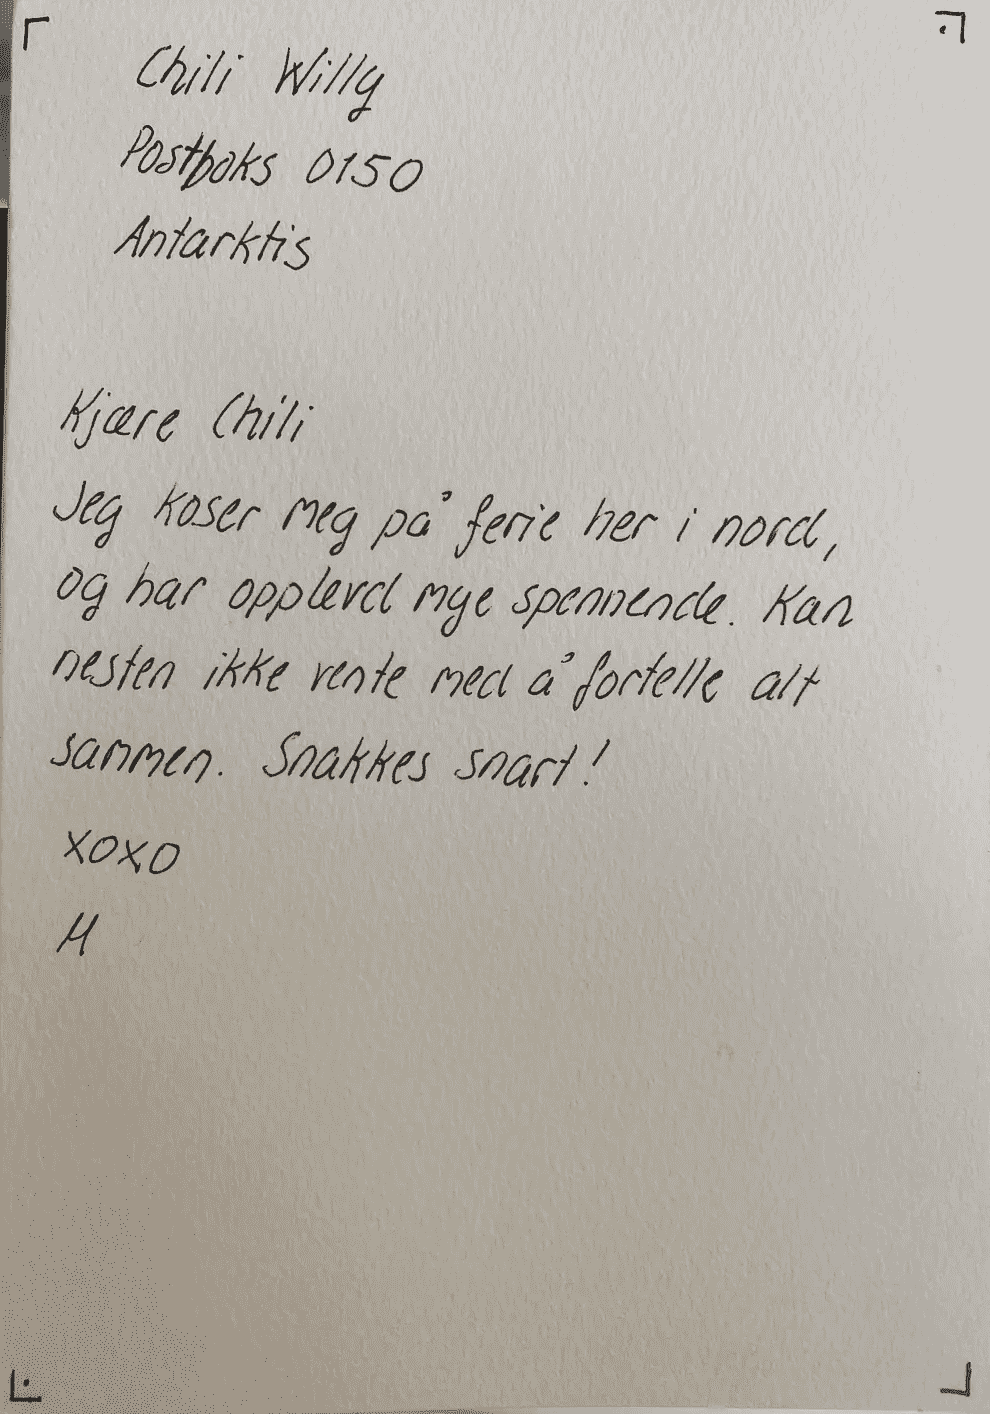 Chili Willy
Postboks 0150
Antarktis
Kjære Chili
Jeg koser meg på ferie her i nord,
og har opplevd mye spennende. Kan
nesten ikke vente med å fortelle alt
sammen. Snakkes snart!
xoxo
M